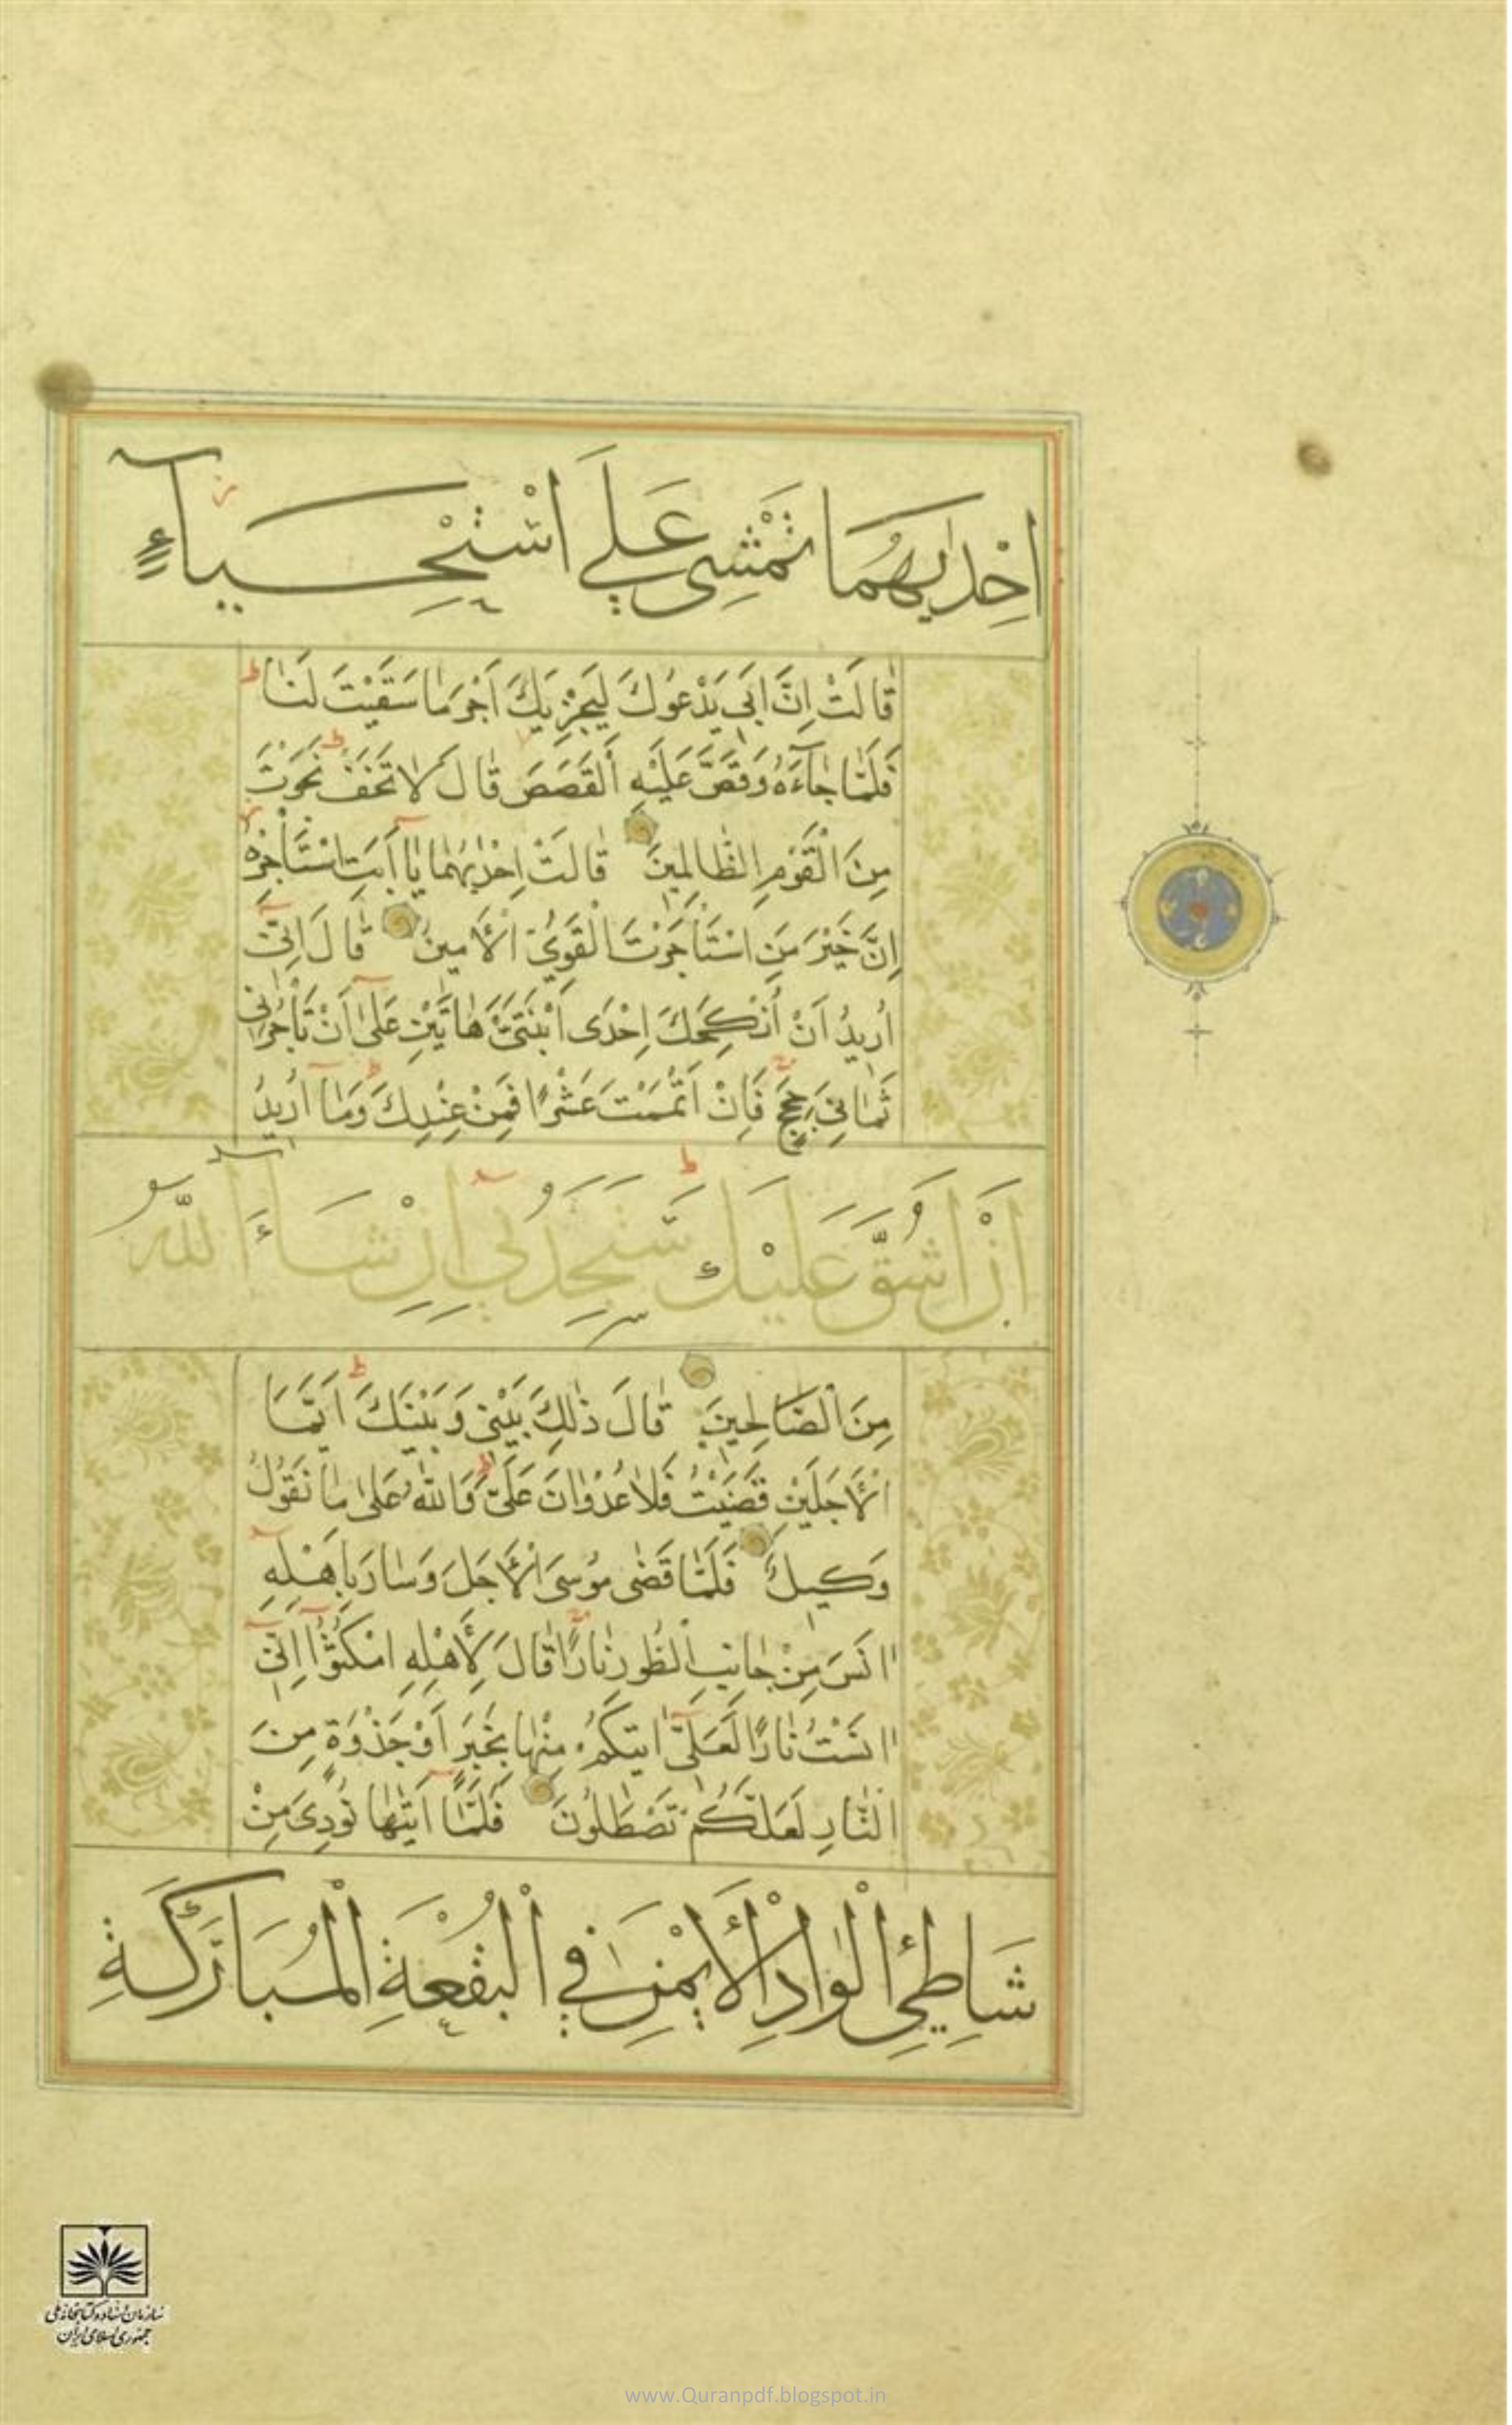 اِحْدٰيهُمَا تَمْشِى عَلَى اسْتِحْيَآءٍ
قَالَتْ اِنَّ اَبِى يَدْعُوكَ لِيَجْزِيَكَ اَجْرَ مَا سَقَيْتَ لَنَا
فَلَمَّا جَآءَهُ وَقَصَّ عَلَيْهِ الْقَصَصَ قَالَ لَا تَخَفْ نَجَوْتَ
مِنَ الْقَوْمِ الظَّالِمِينَ قَالَتْ اِحْدٰيهُمَا يَا اَبَتِ اسْتَأْجِرْهُ
اِنَّ خَيْرَ مَنِ اسْتَأْجَرْتَ الْقَوِىُّ الْاَمِينُ قَالَ اِنِّى
اُرِيدُ اَنْ اُنْكِحَكَ اِحْدَى ابْنَتَىَّ هَاتَيْنِ عَلٰى اَنْ تَأْجُرَنِى
ثَمَانِىَ حِجَجٍ فَاِنْ اَتْمَمْتَ عَشْرًا فَمِنْ عِنْدِكَ وَمَا اُرِيدُ
اَنْ اَشُقَّ عَلَيْكَ سَتَجِدُنِى اِنْ شَآءَ اللّٰهُ
مِنَ الصَّالِحِينَ قَالَ ذٰلِكَ بَيْنِى وَبَيْنَكَ اَيَّمَا
الْاَجَلَيْنِ قَضَيْتُ فَلَا عُدْوَانَ عَلَىَّ وَاللّٰهُ عَلٰى مَا نَقُولُ
وَكِيلٌ فَلَمَّا قَضٰى مُوسَى الْاَجَلَ وَسَارَ بِاَهْلِهِ
اٰنَسَ مِنْ جَانِبِ الطُّورِ نَارًا قَالَ لِاَهْلِهِ امْكُثُوا اِنِّى
اٰنَسْتُ نَارًا لَعَلِّى اٰتِيكُمْ مِنْهَا بِخَبَرٍ اَوْ جَذْوَةٍ مِنَ
النَّارِ لَعَلَّكُمْ تَصْطَلُونَ فَلَمَّا اَتٰيهَا نُودِىَ مِنْ
شَاطِئِ الْوَادِ الْاَيْمَنِ فِى الْبُقْعَةِ الْمُبَارَكَةِ
سازمان اسناد و کتابخانه ملی
جمهوری اسلامی ایران
www.Quranpdf.blogspot.in